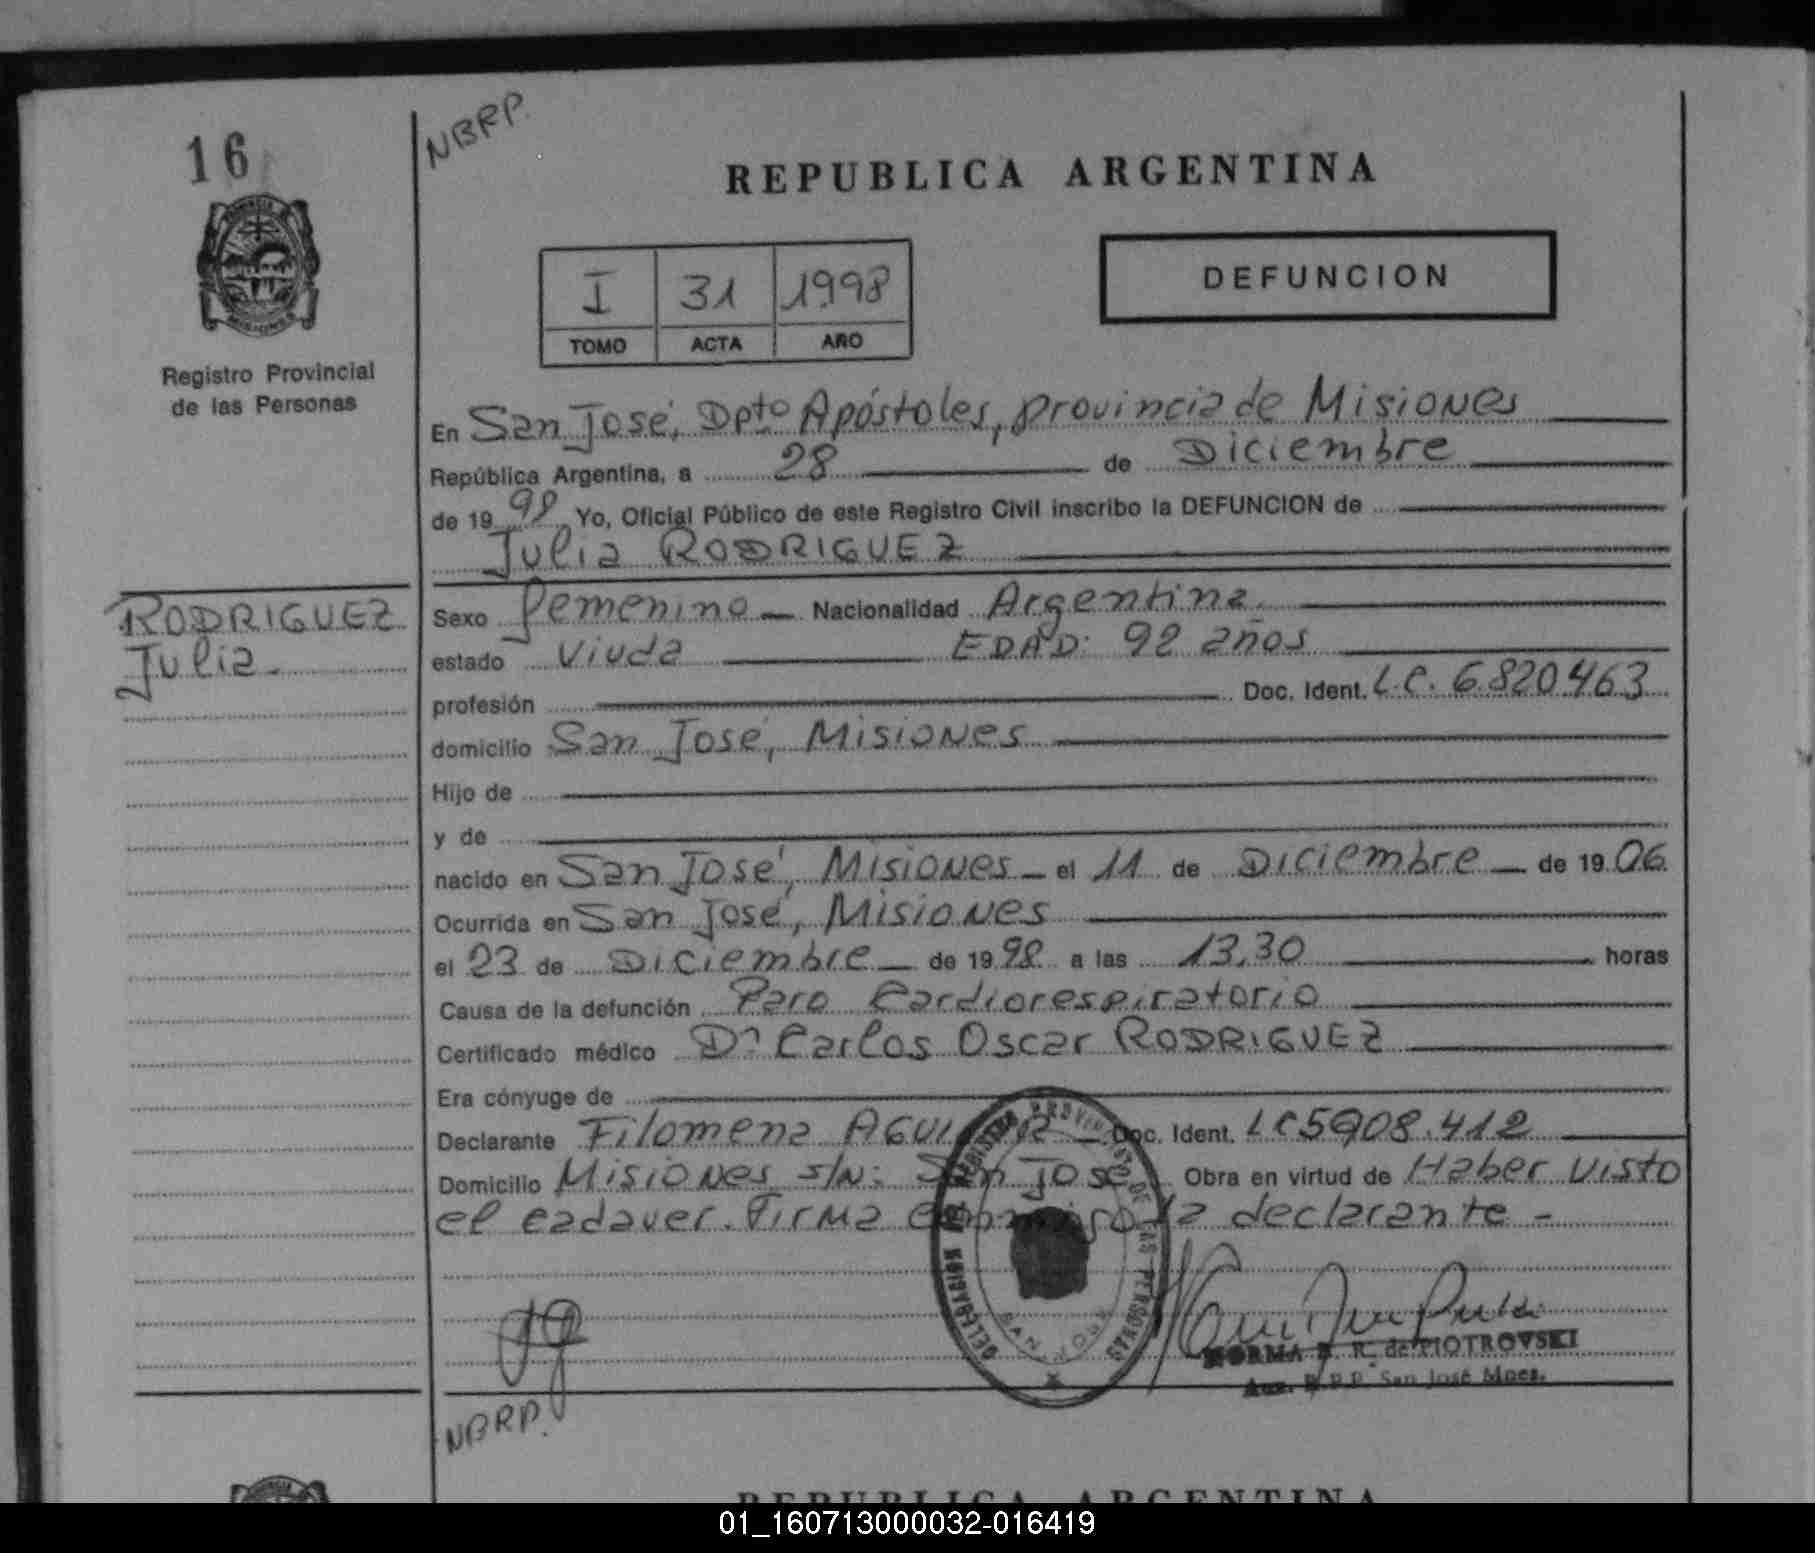 16
NBRP.
REPUBLICA ARGENTINA
DEFUNCION
I 31 1998
TOMO ACTA AÑO
Registro Provincial
de las Personas
En San José, Dpto Apóstoles, provincia de Misiones
República Argentina, a 28 de Diciembre
de 19 98 Yo, Oficial Público de este Registro Civil inscribo la DEFUNCION de
Julia RODRIGUEZ
RODRIGUEZ
Julia.
Sexo femenino Nacionalidad Argentina.
estado Viuda EDAD: 92 años
profesión Doc. Ident. L.C. 6.820.463
domicilio San José, Misiones
Hijo de
y de
nacido en San José, Misiones el 11 de Diciembre de 19 06
Ocurrida en San José, Misiones
el 23 de Diciembre de 19 98 a las 13,30 horas
Causa de la defunción Paro Cardiorespiratorio
Certificado médico Dr Carlos Oscar RODRIGUEZ
Era cónyuge de
Declarante Filomena Doc. Ident. LC 5908.412
Domicilio Misiones s/N: San José Obra en virtud de Haber visto
el cadaver. Firma conmigo la declarante -
DELEGACION DEL REGISTRO PROVINCIAL DE LAS PERSONAS
SAN JOSE
NORMA R. de PIOTROVSKI
Aux. R.P.P. San José Mnes.
NBRP.
REPUBLICA ARGENTINA
01_160713000032-016419